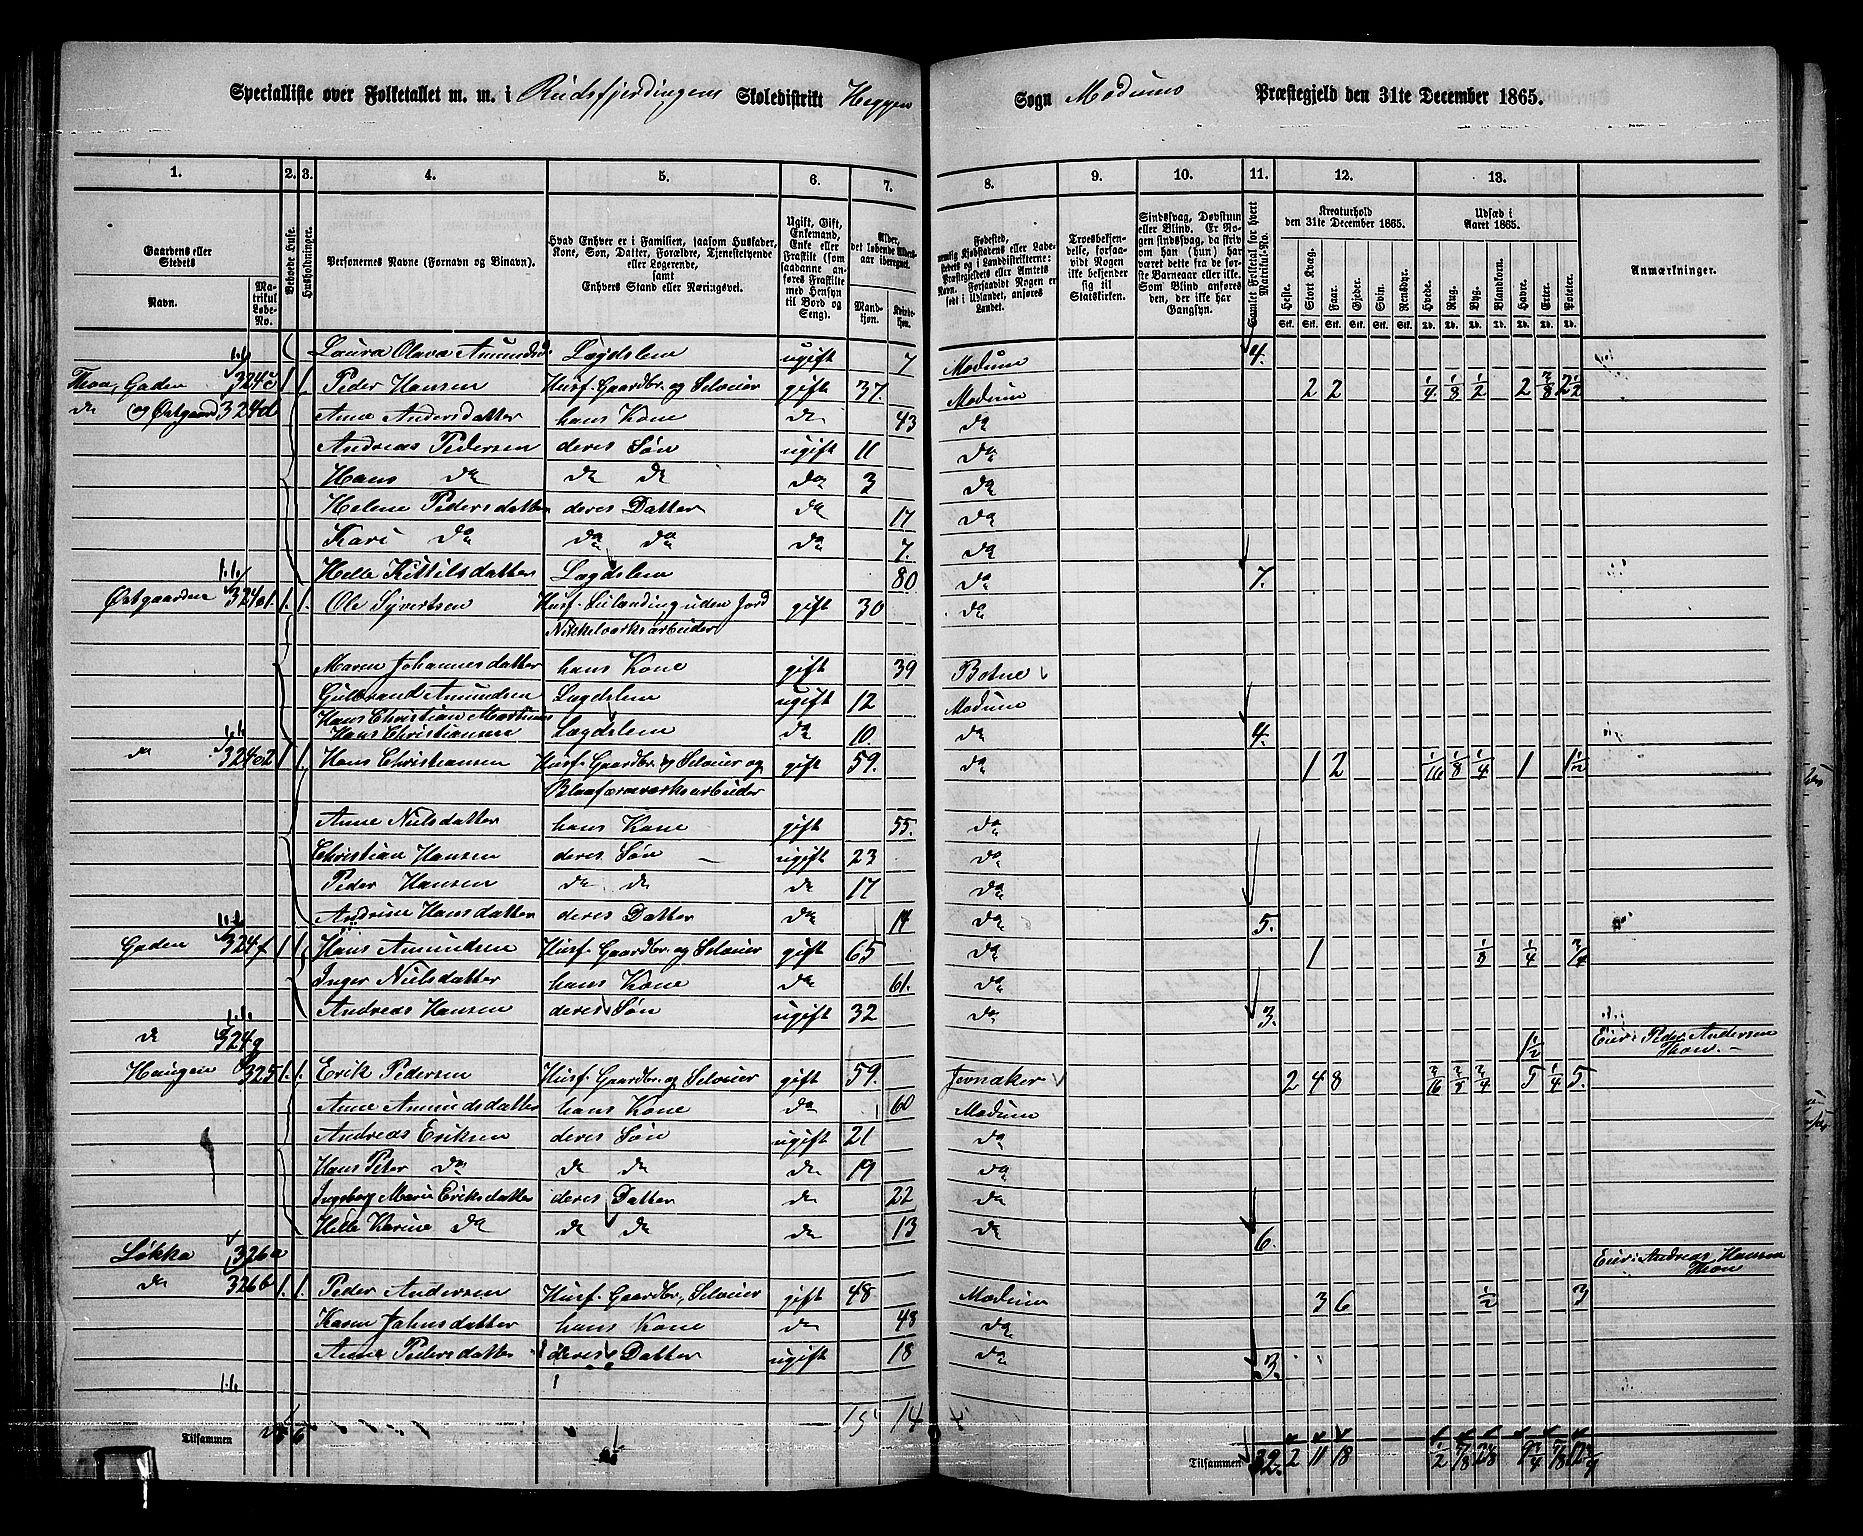 Specialliste over Folketallet m. m. i Rudsfjerdingens Skoledistrikt Heggen Sogn Modums Præstegjeld den 31te December 1865.
1. 2. 3. 4. 5. 6. 7. 8. 9. 10. 11. 12. 13.
Gaardens eller Stedets Navn. Matrikul Løbe-No.
Beboede Huse.
Husholdninger.
Personernes Navne (Fornavn og Binavn).
Hvad Enhver er i Familien, saasom Husfader, Kone, Søn, Datter, Forældre, Tjenestetyende eller Logerende, samt Enhvers Stand eller Næringsvei.
Ugift, Gift, Enkemand, Enke eller Fraskilt (som saadanne anføres Fraskilte med Hensyn til Bord og Seng).
Alder, det løbende Aldersaar iberegnet. Mandkjøn. Kvindekjøn.
Fødested, nemlig Kjøbstadens eller Ladestedets og i Landdistrikterne: Præstegjeldets eller Amtets Navn. Forsaavidt Nogen er født i Udlandet, anføres Landet.
Troesbekjendelse, forsaavidt Nogen ikke bekjender sig til Statskirken.
Sindssvag, Døvstum eller Blind. Er Nogen sindssvag, da skrives om han (hun) har været dette fra de første Barneaar eller ikke. Som Blind anføres den, der ikke har Gangsyn.
Samlet Folketal for hvert Matrikul-No.
Kreaturhold den 31te December 1865.
Heste. Stort Kvæg. Faar. Gjeder. Svin. Rensdyr.
Udsæd i Aaret 1865.
Hvede. Rug. Byg. Blandkorn. Havre. Erter. Poteter.
Anmærkninger.
Laura Olava Amundsd. Lægdslem ugift 7 Modum 4.
Thon, Gaden 324c 1. 1. Peder Hansen Husf. Gaardbr. og Selveier gift 37. Modum 2 2 1/4 1/8 1/2 2 3/8 2 1/2
do og Østgaard 324d Anne Andersdatter hans Kone do 43 do
Andreas Pedersen deres Søn ugift 11 do
Hans do do do do 3 do
Helene Pedersdatter deres Datter do 17 do
Kari do do do do 7. do
Helle Kittilsdatter Lægdslem 80 do 7.
Østgaarden 324e1 1. 1. Ole Syvertsen Husf. Inderst uden Jord gift 30 do
Nikkelverksarbeider
Maren Johannesdatter hans Kone gift 39 Botne
Gulbrand Amundsen Lægdslem ugift 12 Modum
Hans Christian Martinus
Hans Christiansen Lægdslem do 10. do 4.
do 324e2 1 1. Hans Christiansen Husf. Gaardbr. og Selveier og gift 59. do 1 2 1/16 1/8 1/4 1 1 1/2
Blaafarveverksarbeider
Anne Nielsdatter hans Kone gift 55. do
Christian Hansen deres Søn ugift 23 do
Peder Hansen do do do 17 do
Andrine Hansdatter deres Datter do 14 do 5.
Gaden 324f 1 1. Hans Amundsen Husf. Gaardbr. og Selveier gift 65 do 1 1/3 1/4 3/4
Inger Nielsdatter hans Kone do 61. do
Andreas Hansen deres Søn ugift 32 do 3.
do 324g 1 1/2 Eier: Peder Andersen
Thon.
Haugen 325 1. 1. Erik Pedersen Husf. Gaardbr. og Selveier gift 59. Jevnaker 2 4 8 3/16 3/8 3/4 5 1/4 5.
Anne Amundsdatter hans Kone do 60 Modum
Andreas Eriksen deres Søn ugift 21 do
Hans Peter do do do do 19 do
Ingeborg Marie Eriksdatter deres Datter do 22 do
Helle Karine do do do do 13 do 6.
Løkka 326a Eier: Andreas Hansen
Thon
do 326b 1. 1. Peder Andersen Husf. Gaardbr. Selveier gift 48 Modum 3 6 1/2 3
Karen Jahnsdatter hans Kone do 48 do
Anne Pedersdatter deres Datter ugift 18 do 3.
Tilsammen 6 15 14 Tilsammen 32. 2 11 18 1/2 7/8 9 3/4 7/8